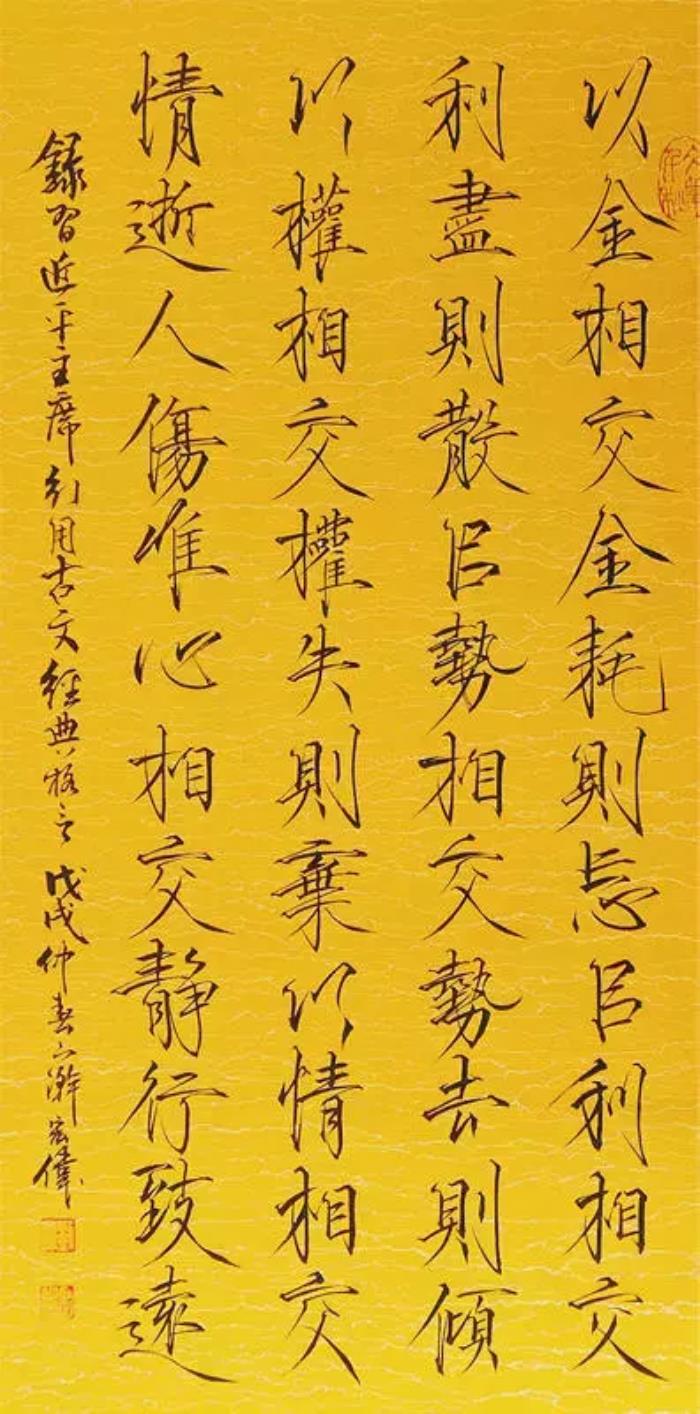 以金相交金耗則忘㠯利相交
利盡則散㠯勢相交勢去則傾
以權相交權失則棄以情相交
情逝人傷惟心相交靜行致遠
錄習近平主席引用古文經典格言戊戌仲春下澣宏偉